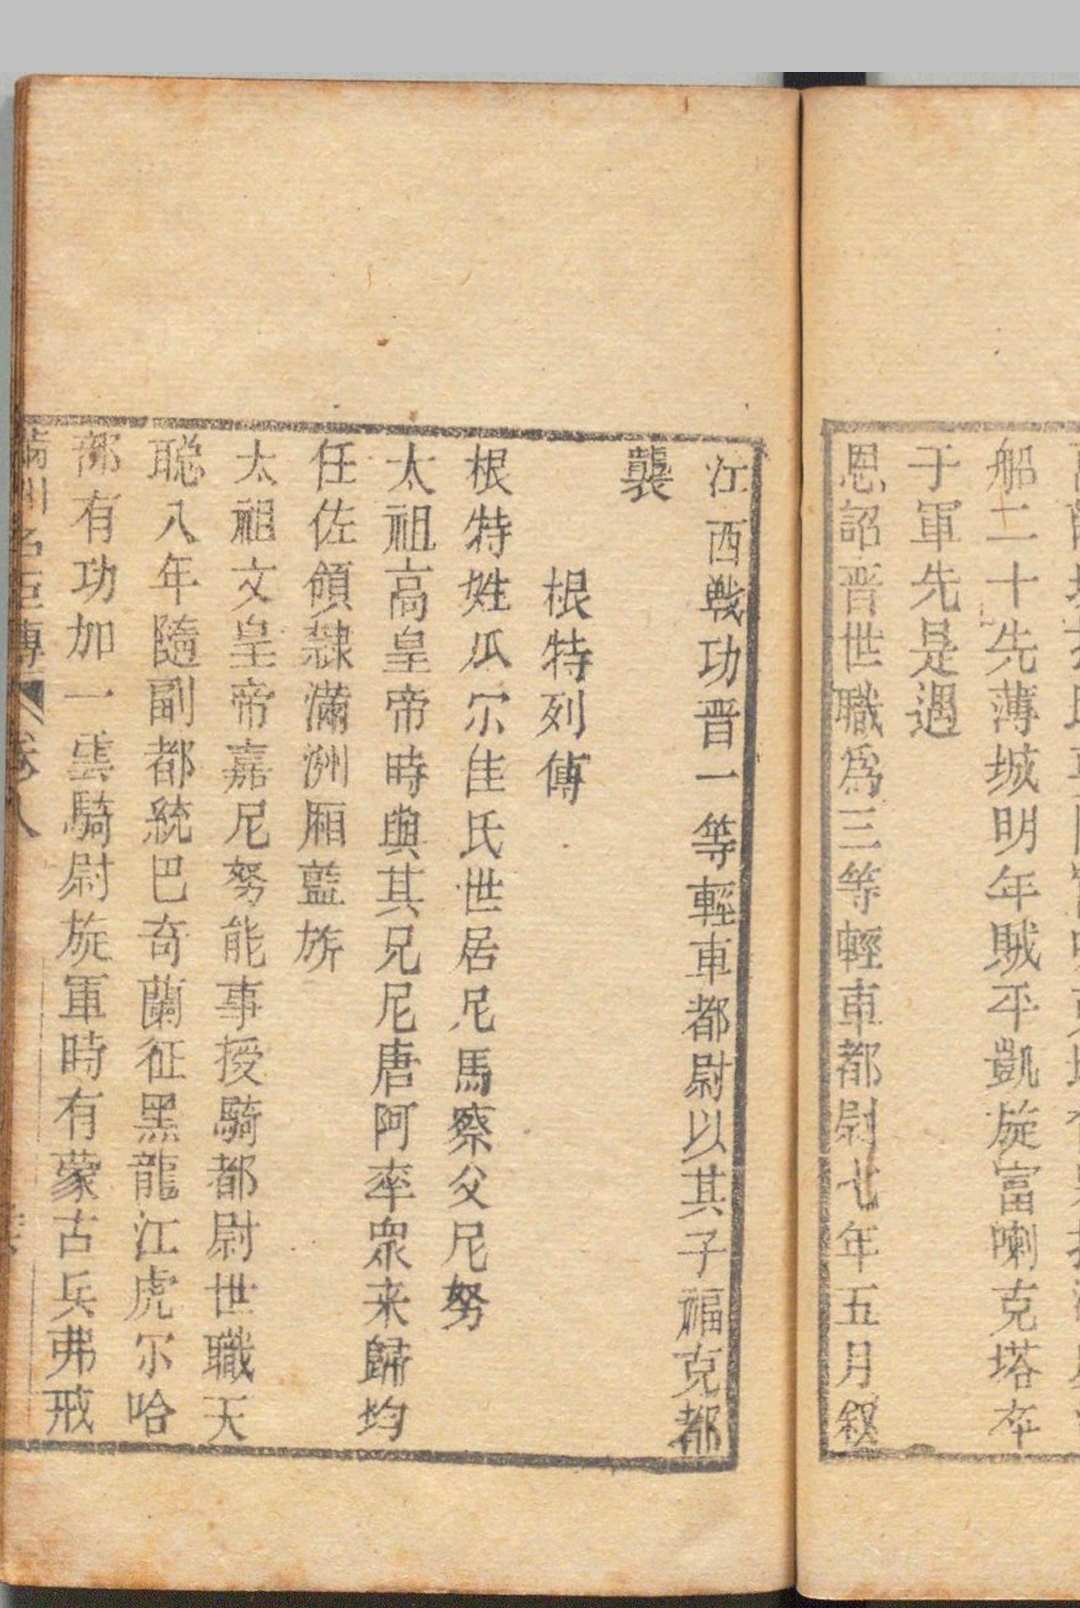 船二十先薄城明年賊平凱旋富喇克塔卒
于軍先是遇
恩詔晋世職爲三等輕車都尉七年五月敘
江西戰功晋一等輕車都尉以其子福克都
襲
根特列傳
根特姓瓜尔佳氏世居尼馬察父尼努
太祖高皇帝時與其兄尼唐阿率眾来歸均
任佐領隸滿洲廂藍旂
太祖文皇帝嘉尼努能事授騎都尉世職天
聡八年隨副都統巴奇蘭征黑龍江虎尔哈
部有功加一雲騎尉旋軍時有蒙古兵弗戒
滿州名臣傳 卷八